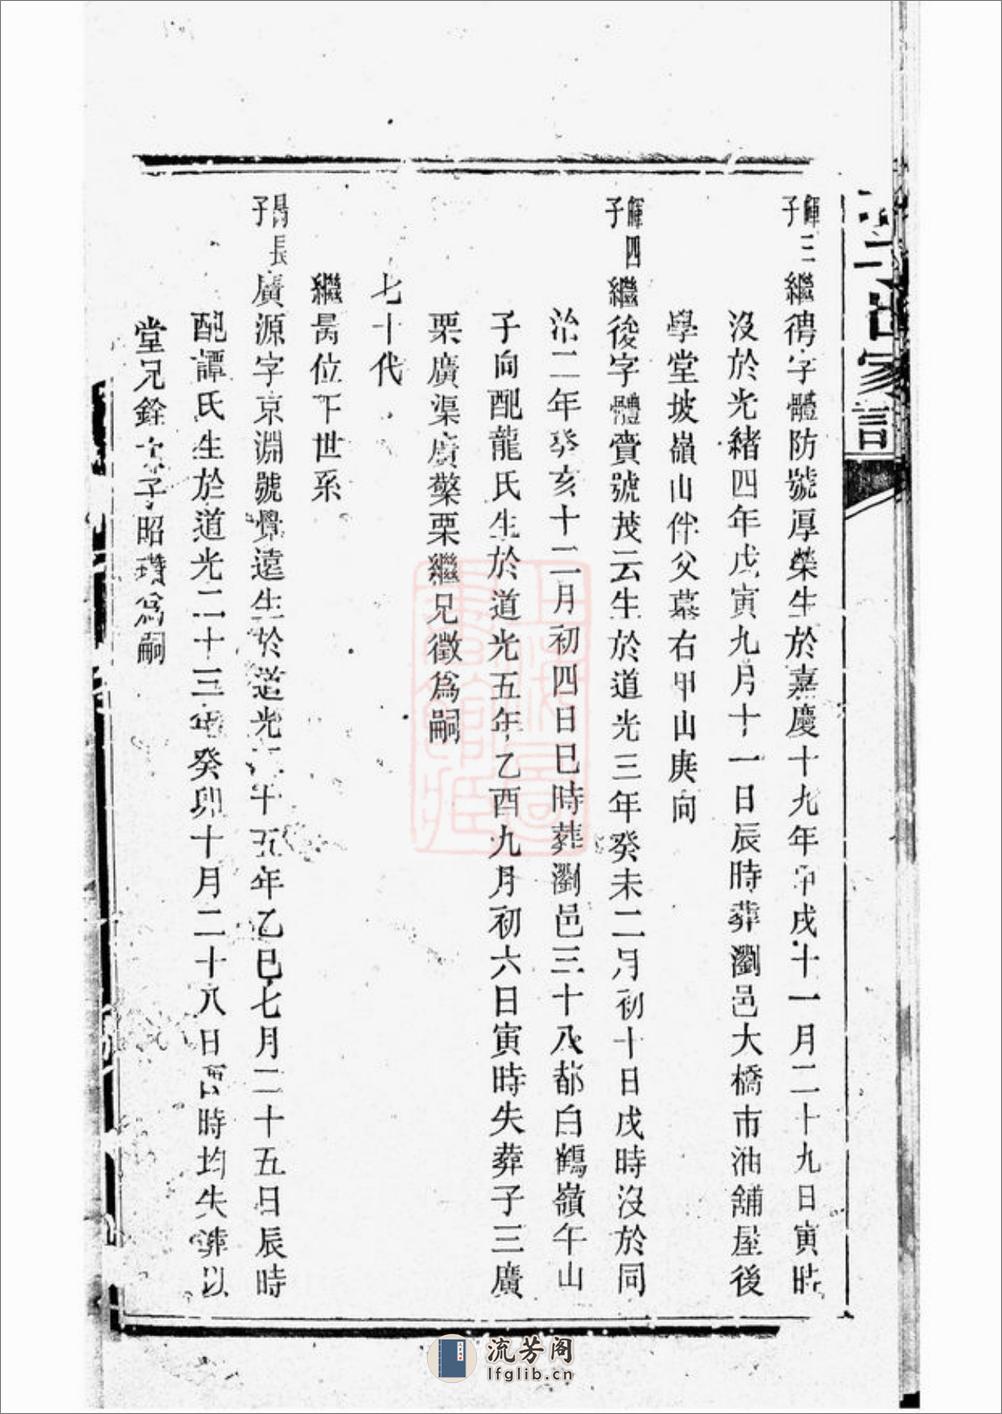 輝三子繼聘字體防號厚榮生於嘉慶十九年甲戌十一月二十九日寅時
沒於光緒四年戊寅九月十一日辰時葬瀏邑大橋市油舖屋後
學堂坡嶺山伴父墓右甲山庚向
輝四子繼後字體賚號茂云生於道光三年癸未二月初十日戌時沒於同
治二年癸亥十二月初四日巳時葬瀏邑三十八都白鶴嶺午山
子向配龍氏生於道光五年乙酉九月初六日寅時失葬子三廣
栗廣渠廣檠栗繼兄徵爲嗣
七十代
繼昺位下世系
昺長子廣源字京淵號覺遠生於道光二十五年乙巳七月二十五日辰時
配譚氏生於道光二十三年癸卯十月二十八日酉時均失葬以
堂兄銓次子昭瓚爲嗣
流芳阁
lfglib.cn